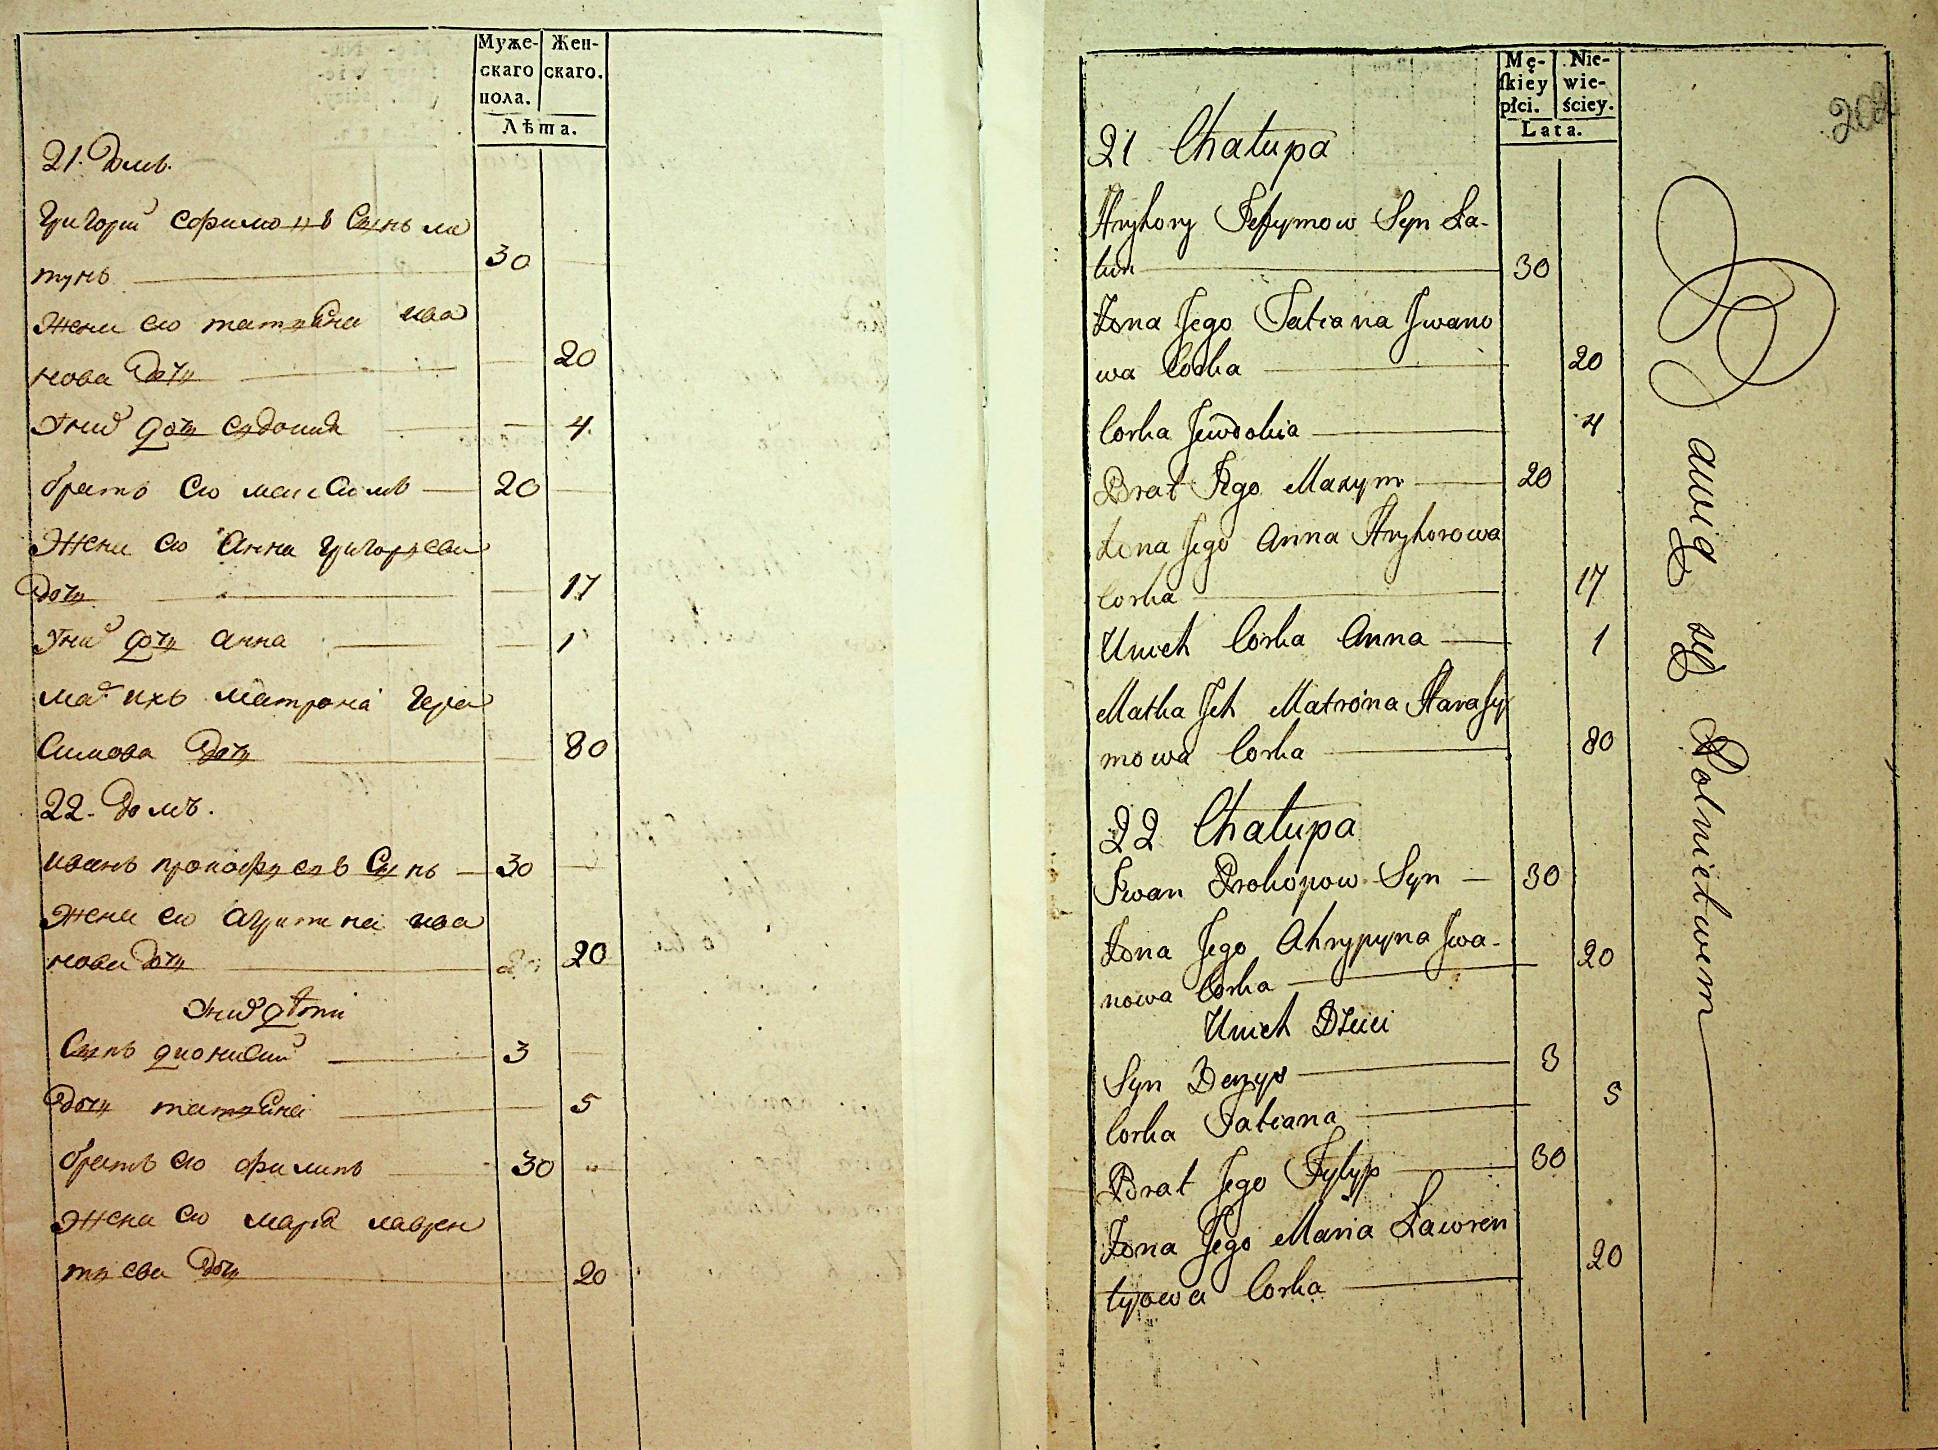 Муже-
скаго
пола.
Жен-
скаго.
Лѣта.
21. Домъ.
Григорій Ефимовъ Сынъ ла
тунъ 30
Жена его татьяна ива
нова Дочь 20
У них дочь евдокия 4
братъ его максимъ 20
Жена его Анна григорьева
Дочь 17
У них дочь анна 1
мат ихъ матрона Гера
симова Дочь 80
22. Домъ.
иванъ прокофьевъ Сынъ 30
Жена его агрипина ива
нова Дочь 20
У них дѣти
Сынъ дионисий 3
Дочь татьяна 5
братъ его филипъ 30
Жена его марья лаврен
тьева Дочь 20
Mę-
skiey
płci.
Nie-
wie-
ściey.
Lata.
202
21 Chałupa
Hryhory Jefymow Syn Ła-
tun 30
Żona Jego Tatiana Jwano
wa Corka 20
Corka Jewdokia 4
Brat Jego Maxym 20
Żona Jego Anna Hryhorowa
Corka 17
Unich Corka Anna 1
Matka Jch Matrona Harasy
mowa Corka 80
22 Chałupa
Jwan Prokopow Syn 30
Żona Jego Ahrypyna Jwa-
nowa Corka 20
Unich Dzieci
Syn Denys 3
Corka Tatiana 5
Brat Jego Fylyp 30
Żona Jego Maria Ławren
tyowa Corka 20
Bawią się Rolnictwem